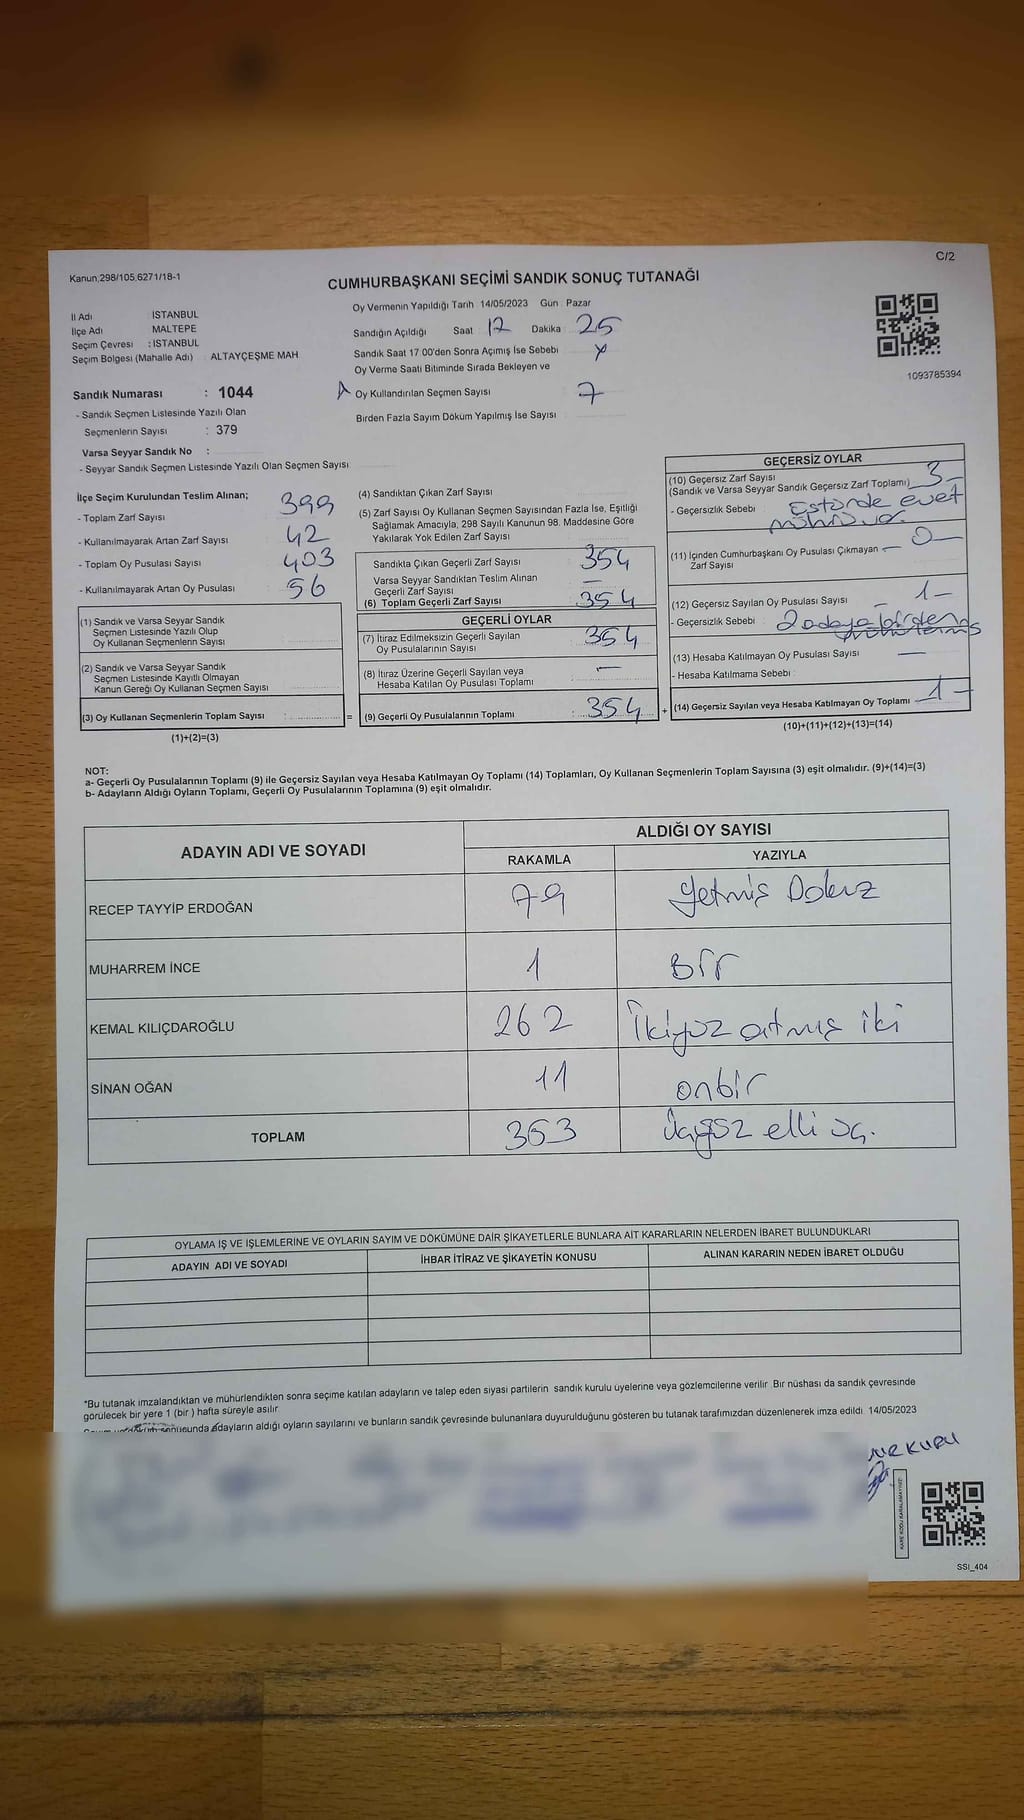 C/2
Kanun,298/105,6271/18-1
CUMHURBAŞKANI SEÇİMİ SANDIK SONUÇ TUTANAĞI
İl Adı : İSTANBUL
İlçe Adı MALTEPE
Seçim Çevresi : İSTANBUL
Seçim Bölgesi (Mahalle Adı) : ALTAYÇEŞME MAH
Oy Vermenin Yapıldığı Tarih 14/05/2023 Gün Pazar
Sandığın Açıldığı Saat 17 Dakika 25
Sandık Saat 17 00'den Sonra Açımış İse Sebebi
Oy Verme Saati Bitiminde Sırada Bekleyen ve
Oy Kullandırılan Seçmen Sayısı 7
Birden Fazla Sayım Döküm Yapılmış İse Sayısı
1093785394
Sandık Numarası : 1044
- Sandık Seçmen Listesinde Yazılı Olan
Seçmenlerin Sayısı : 379
Varsa Seyyar Sandık No :
- Seyyar Sandık Seçmen Listesinde Yazılı Olan Seçmen Sayısı
İlçe Seçim Kurulundan Teslim Alınan;
- Toplam Zarf Sayısı 399
- Kullanılmayarak Artan Zarf Sayısı 42
- Toplam Oy Pusulası Sayısı 403
- Kullanılmayarak Artan Oy Pusulası 56
(1) Sandık ve Varsa Seyyar Sandık
Seçmen Listesinde Yazılı Olup
Oy Kullanan Seçmenlerin Sayısı
(2) Sandık ve Varsa Seyyar Sandık
Seçmen Listesinde Kayıtlı Olmayan
Kanun Gereği Oy Kullanan Seçmen Sayısı
(3) Oy Kullanan Seçmenlerin Toplam Sayısı :
(1)+(2)=(3)
(4) Sandıktan Çıkan Zarf Sayısı
(5) Zarf Sayısı Oy Kullanan Seçmen Sayısından Fazla İse, Eşitliği
Sağlamak Amacıyla; 298 Sayılı Kanunun 98. Maddesine Göre
Yakılarak Yok Edilen Zarf Sayısı
Sandıkta Çıkan Geçerli Zarf Sayısı 354
Varsa Seyyar Sandıktan Teslim Alınan
Geçerli Zarf Sayısı —
(6) Toplam Geçerli Zarf Sayısı 354
GEÇERLİ OYLAR
(7) İtiraz Edilmeksizin Geçerli Sayılan
Oy Pusulalarının Sayısı 354
(8) İtiraz Üzerine Geçerli Sayılan veya
Hesaba Katılan Oy Pusulası Toplamı —
= (9) Geçerli Oy Pusulalarının Toplamı : 354 +
GEÇERSİZ OYLAR
(10) Geçersiz Zarf Sayısı
(Sandık ve Varsa Seyyar Sandık Geçersiz Zarf Toplamı) 3-
- Geçersizlik Sebebi : Üstünde evet
(11) İçinden Cumhurbaşkanı Oy Pusulası Çıkmayan — 0—
Zarf Sayısı
(12) Geçersiz Sayılan Oy Pusulası Sayısı 1-
- Geçersizlik Sebebi : 2 adaya birden
(13) Hesaba Katılmayan Oy Pusulası Sayısı —
- Hesaba Katılmama Sebebi :
(14) Geçersiz Sayılan veya Hesaba Katılmayan Oy Toplamı 1-
(10)+(11)+(12)+(13)=(14)
NOT:
a- Geçerli Oy Pusulalarının Toplamı (9) ile Geçersiz Sayılan veya Hesaba Katılmayan Oy Toplamı (14) Toplamları, Oy Kullanan Seçmenlerin Toplam Sayısına (3) eşit olmalıdır. (9)+(14)=(3)
b- Adayların Aldığı Oyların Toplamı, Geçerli Oy Pusulalarının Toplamına (9) eşit olmalıdır.
ADAYIN ADI VE SOYADI
ALDIĞI OY SAYISI
RAKAMLA YAZIYLA
RECEP TAYYİP ERDOĞAN 79 Yetmiş Dokuz
MUHARREM İNCE 1 Bir
KEMAL KILIÇDAROĞLU 262 İkiyüz atmış iki
SİNAN OĞAN 11 onbir
TOPLAM 353 Üçyüz elli üç.
OYLAMA İŞ VE İŞLEMLERİNE VE OYLARIN SAYIM VE DÖKÜMÜNE DAİR ŞİKAYETLERLE BUNLARA AİT KARARLARIN NELERDEN İBARET BULUNDUKLARI
ADAYIN ADI VE SOYADI İHBAR İTİRAZ VE ŞİKAYETİN KONUSU ALINAN KARARIN NEDEN İBARET OLDUĞU
*Bu tutanak imzalandıktan ve mühürlendikten sonra seçime katılan adayların ve talep eden siyasi partilerin sandık kurulu üyelerine veya gözlemcilerine verilir .Bir nüshası da sandık çevresinde
görülecek bir yere 1 (bir ) hafta süreyle asılır.
sonucunda adayların aldığı oyların sayılarını ve bunların sandık çevresinde bulunanlara duyurulduğunu gösteren bu tutanak tarafımızdan düzenlenerek imza edildi. 14/05/2023
KARE KODU KARALAMAYINIZ!
SSİ_404